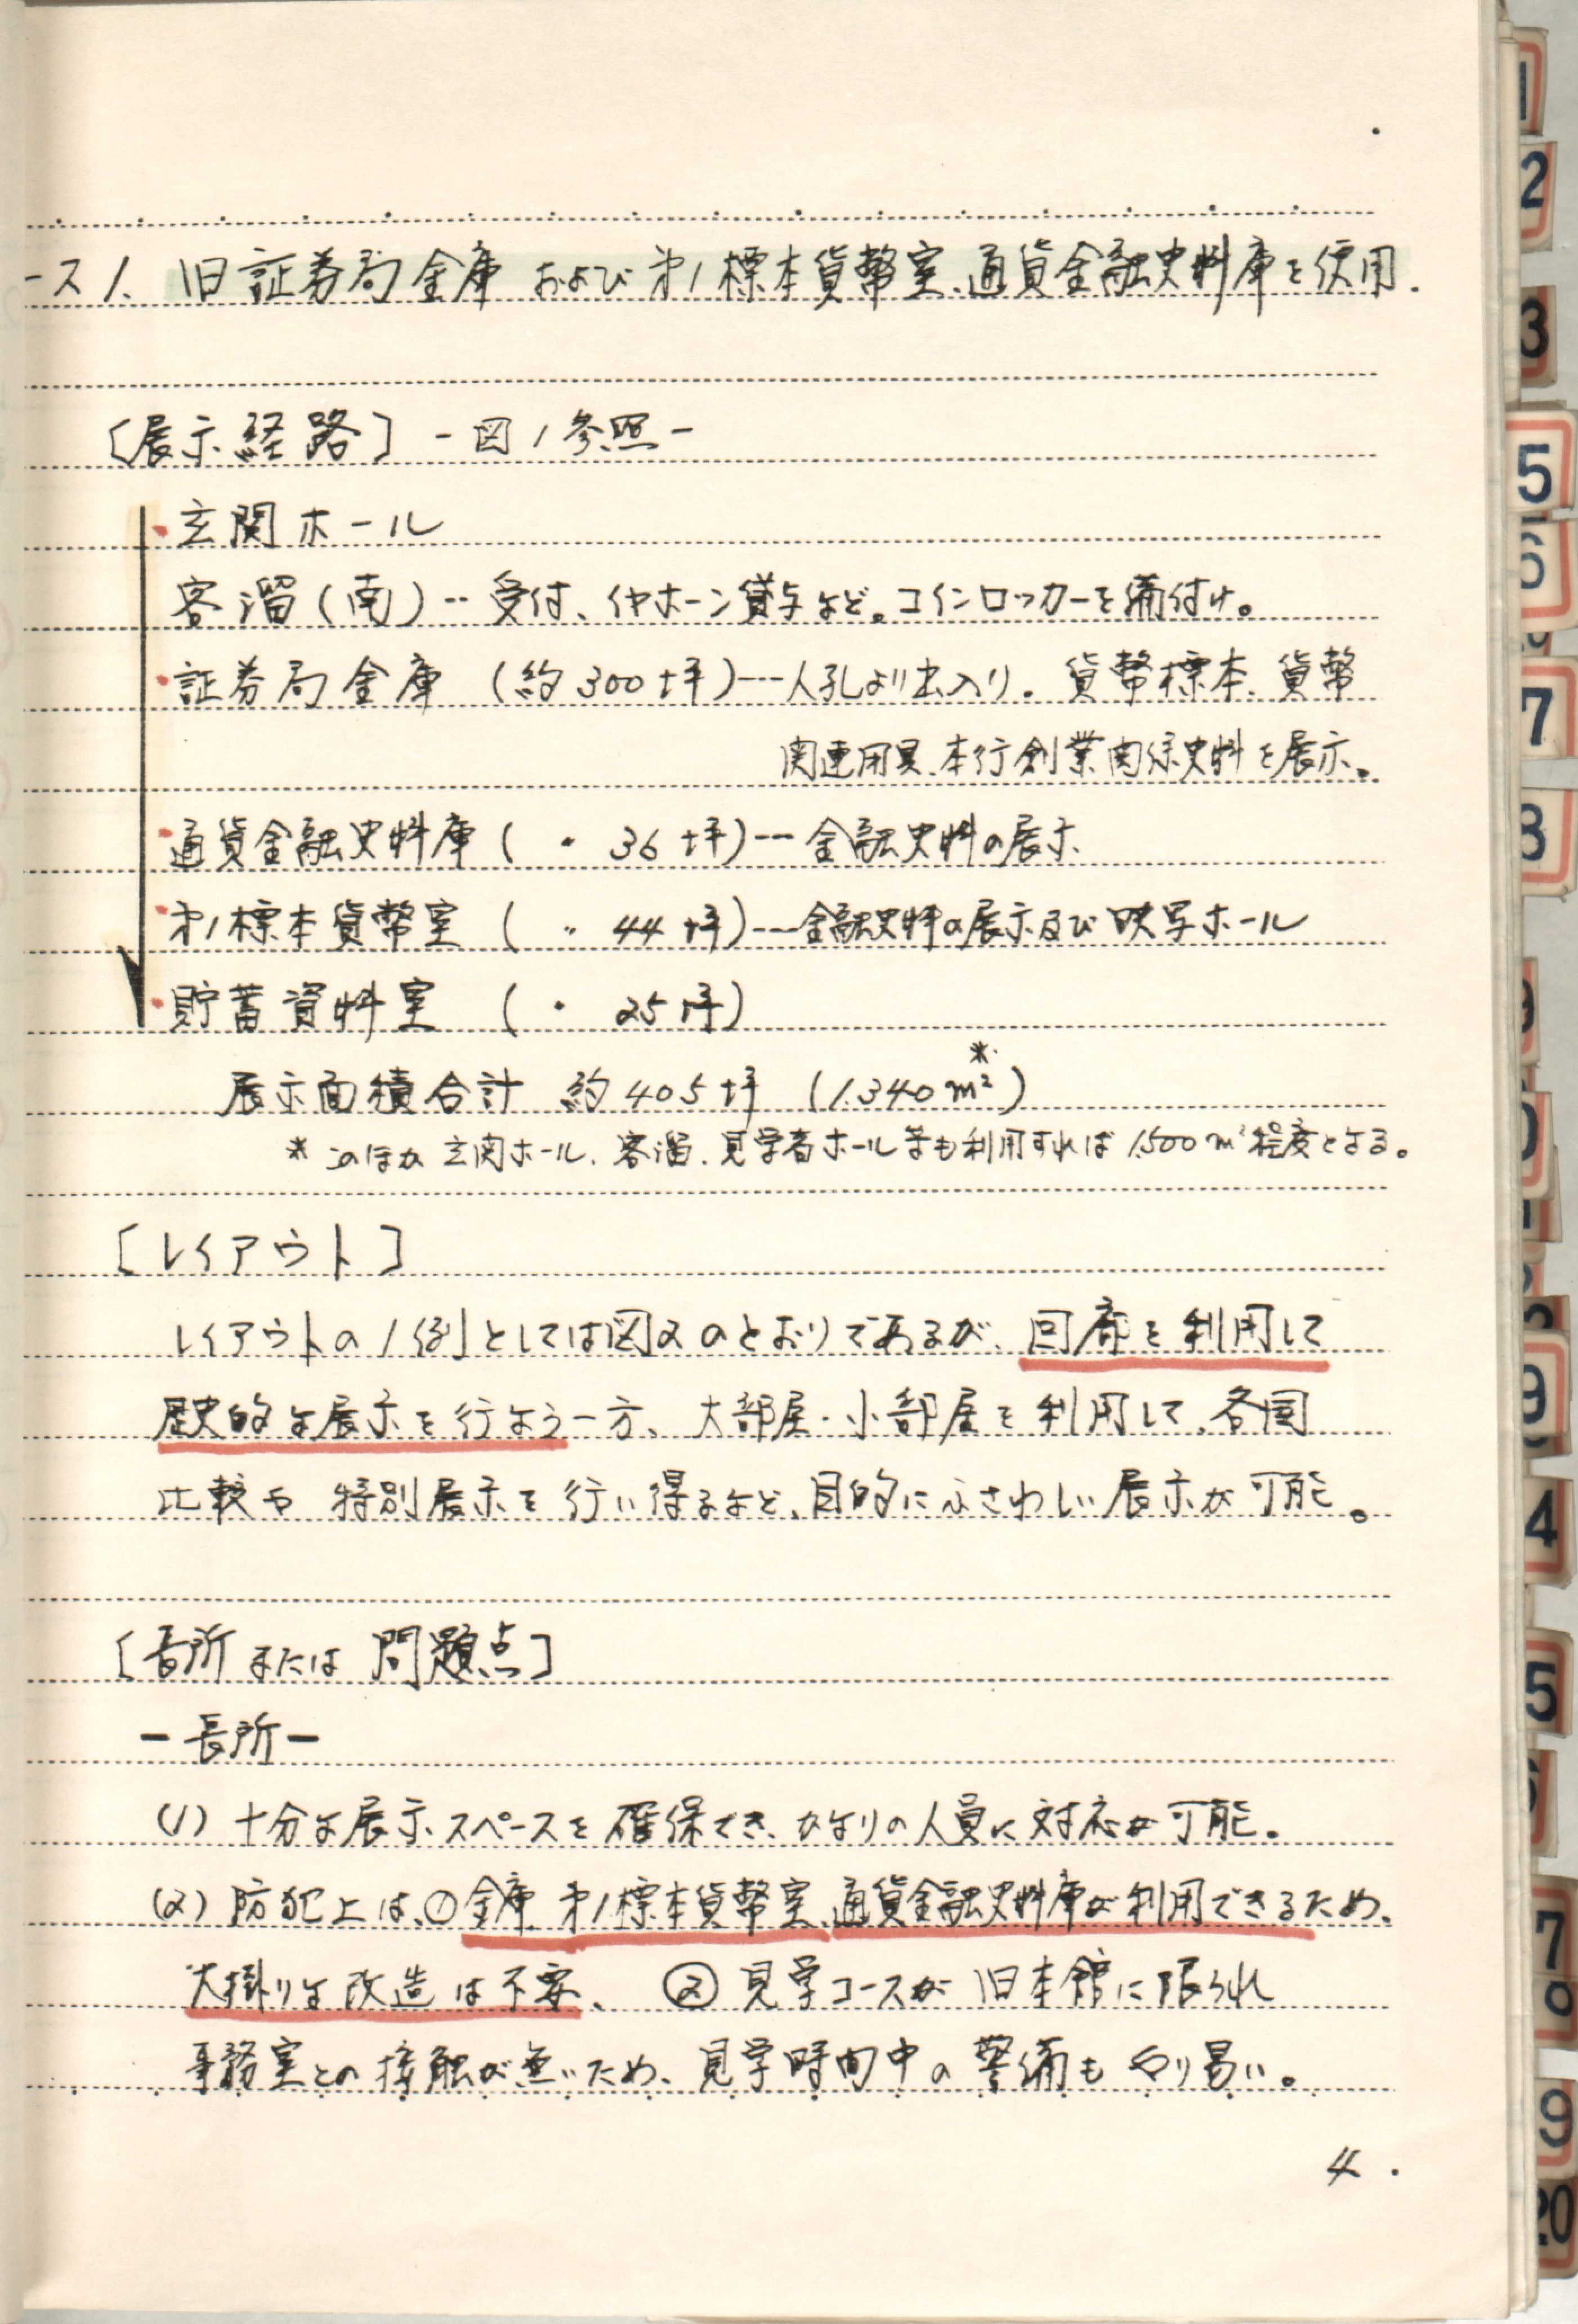 ース1. 旧証券局金庫 および 才1標本貨幣室、通貨金融史料庫を使用.
〔展示経路〕 -図1参照-
・玄関ホール
客溜(南)‥受付、イヤホーン貸与など。コインロッカーを備付け。
・証券局金庫 (約300坪)---人孔より出入り。貨幣標本、貨幣
関連用具、本行創業関係史料を展示。
・通貨金融史料庫 ( 〃 36坪)---金融史料の展示
・才1標本貨幣室 ( 〃 44坪)---金融史料の展示及び映写ホール
・貯蓄資料室 ( 〃 25坪)
展示面積合計 約405坪 (1.340m²)*
* このほか 玄関ホール、客溜、見学者ホール等も利用すれば 1.500m²程度となる。
[レイアウト]
レイアウトの1例としては図2のとおりであるが、回廊を利用して
歴史的な展示を行なう一方、大部屋・小部屋を利用して、各国
比較や 特別展示を行い得るなど、目的にふさわしい展示が可能。
[長所または 問題点]
-長所-
(1) 十分な展示スペースを確保でき、かなりの人員に対応が可能。
(2) 防犯上は、①金庫、才1標本貨幣室、通貨金融史料庫が利用できるため、
大掛りな改造は不要、 ②見学コースが 旧本館に限られ
事務室との接触が無いため、見学時間中の警備もやり易い。
4.
1
2
3
5
6
7
8
9
4
5
7
8
19
20